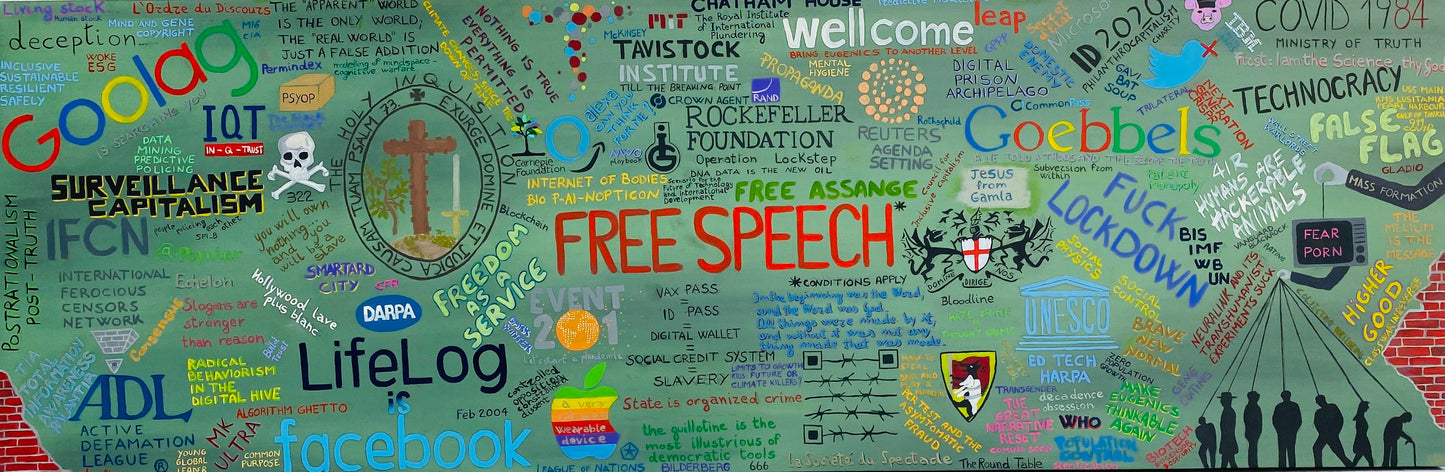 Living stock
Human stock
deception...
MIND AND GENE
COPYRIGHT
L'Ordre du Discours
MI6
CIA
THE "APPARENT" WORLD
IS THE ONLY WORLD,
THE "REAL WORLD" IS
JUST A FALSE ADDITION
modelling of mindspace -
cognitive warfare
CLIMATE CHANGES SINCE
DAWN OF TIME
NOTHING IS TRUE
EVERYTHING IS PERMITTED
INCLUSIVE
SUSTAINABLE
RESILIENT
SAFELY
WOKE
ESG
Goolag
IS SEARCHING YOU
Permindex
PSYOP
IQT
IN-Q-TRUST
DATA
MINING
PREDICTIVE
POLICING
SURVEILLANCE
CAPITALISM
322
THE HOLY INQUISITION
EXURGE DOMINE ET JUDICA CAUSAM TUAM PSALM 73.
McKINSEY
MIT
CHATHAM HOUSE
The Royal Institute
of International
Plundering
TAVISTOCK
INSTITUTE
TILL THE BREAKING POINT
RAND
alexa
CAN YOU
THINK
FOR ME?
CROWN AGENT
ROCKEFELLER
FOUNDATION
Operation LockStep
DNA DATA IS THE NEW OIL
NATO
playbook
Carnegie
Foundation
INTERNET OF BODIES
BIO P-AI-NOPTICON
Scenario for the
Future of Technology
and International
Development
wellcome
BRINGING EUGENICS TO ANOTHER LEVEL
MENTAL
HYGIENE
PROPAGANDA
leap
GPPP
Microsoft
DIGITAL
PRISON
ARCHIPELAGO
DOMESTIC
ENEMY
ID2020
PHILANTHROCAPITALISM
CHARITY
GAVI
BAT
SOUP
TRILATERAL
IBM
COVID 1984
MINISTRY OF TRUTH
TECHNOCRACY
USS MAINE
RMS LUSITANIA
PEARL HARBOUR
GULF OF TONKIN
911
FALSE
FLAG
GLADIO
REUTERS
AGENDA
SETTING
Rothschild
CommonPass
Goebbels
A LIE TOLD A THOUSAND TIMES BECOMES THE TRUTH
Subversion from
within
JESUS
from
Gamla
Council for
Inclusive Capitalism
FREE ASSANGE
FREE SPEECH*
*CONDITIONS APPLY
4IR
HUMANS ARE
HACKERABLE
ANIMALS
MASS FORMATION
FEAR
PORN
THE
MEDIUM
IS THE
MESSAGE
POSTRATIONALISM
POST-TRUTH
IFCN
INTERNATIONAL
FEROCIOUS
CENSORS
NETWORK
people policing each other
SPI-B
Poynter
Echelon
you will own
nothing &
you will
be a
slave
SMARTARD
CITY
CFR
Blockchain
FREEDOM
AS A
SERVICE
Slogans are
stronger
than reason
Hollywood lave
plus blanc
DARPA
Converganis
EVENT
201
let's start a pandemic
VAX PASS
=
ID PASS
=
DIGITAL WALLET
=
SOCIAL CREDIT SYSTEM
=
SLAVERY
In the beginning was the Word,
and the Word was God.
All things were made by it,
and without it was not any
thing made that was made.
LIMITS TO GROWTH
KILL FUTURE OF
CLIMATE KILLERS?
DOMINE DIRIGE NOS
Bloodline
HATE CRIME
THOUGHT CRIME
UNESCO
ED TECH
HARPA
FUCK
LOCKDOWN
SOCIAL
PHYSICS
SOCIAL
CONTROL
BRAVE
NEW
NORMAL
BIS
IMF
WB
UN
VANGUARD
BLACKROCK
NEURALINK AND ITS
TRANSHUMANIST
EXPERIMENTS SUCK
HIGHER
GOOD
TIA
TOTAL
INFORMATION
AWARENESS
ADL
ACTIVE
DEFAMATION
LEAGUE ®
RADICAL
BEHAVIORISM
IN THE
DIGITAL HIVE
ALGORITHM GHETTO
MK
ULTRA
YOUNG
GLOBAL
LEADER
COMMON
PURPOSE
LifeLog
is
facebook
Feb 2004
controlled
opposition
a very
wearable
device
LEAGUE OF NATIONS
State is organized crime
the guillotine is the
most illustrious of
democratic tools
BILDERBERG
666
La Société du Spectacle
The Round Table
PCR TEST AND THE
ASYMPTOMATIC
FRAUD
TRANSGENDER
THE
GREAT
NARRATIVE
RESET
decadence
obsession
WHO
POPULATION
CONTROL
ZERO
POPULATION
GROWTH
MAKE
EUGENICS
THINKABLE
AGAIN
GENE
EDITING
BIOTECH